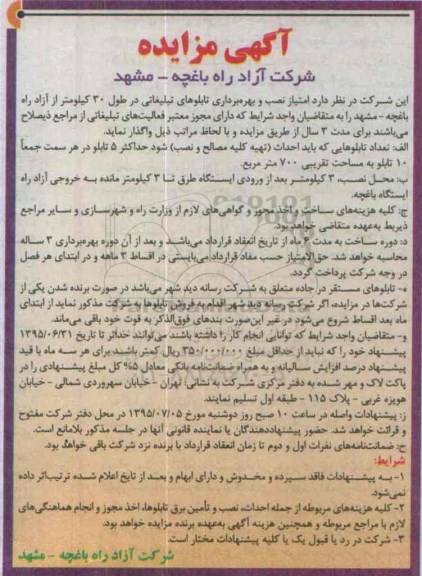 آگهی مزایده
شرکت آزاد راه باغچه - مشهد
این شرکت در نظر دارد امتیاز نصب و بهره‌برداری تابلوهای تبلیغاتی در طول ۳۰ کیلومتر از آزاد راه
باغچه - مشهد را به متقاضیان واجد شرایط که دارای مجوز معتبر فعالیت‌های تبلیغاتی از مراجع ذیصلاح
می‌باشند برای مدت ۳ سال از طریق مزایده و با لحاظ مراتب ذیل واگذار نماید.
الف: تعداد تابلوهایی که باید احداث (تهیه کلیه مصالح و نصب) شود حداکثر ۵ تابلو در هر سمت جمعاً
۱۰ تابلو به مساحت تقریبی ۷۰۰ متر مربع.
ب: محل نصب، ۳ کیلومتر بعد از ورودی ایستگاه طرق تا ۳ کیلومتر مانده به خروجی آزاد راه
ایستگاه باغچه.
ج: کلیه هزینه‌های ساخت و اخذ مجوز و گواهی‌های لازم از وزارت راه و شهرسازی و سایر مراجع
ذیربط به‌عهده متقاضی خواهد بود.
د: دوره ساخت به مدت ۶ ماه از تاریخ انعقاد قرارداد می‌باشد و بعد از آن دوره بهره‌برداری ۳ ساله
محاسبه خواهد شد. حق‌الامتیاز حسب مفاد قرارداد می‌بایستی در اقساط ۳ ماهه و در ابتدای هر فصل
در وجه شرکت پرداخت گردد.
ه- تابلوهای مستقر در جاده متعلق به شرکت رسانه دید شهر می‌باشد در صورت برنده شدن یکی از
شرکت‌ها در مزایده، اگر شرکت رسانه دید شهر اقدام به فروش تابلوها به شرکت مذکور نماید از ابتدای
ماه بعد اقساط شروع می‌شود در غیر این‌صورت بندهای فوق‌الذکر به قوت خود باقی می‌ماند.
و- متقاضیان واجد شرایط که توانایی انجام کار را داشته باشند می‌توانند حداکثر تا تاریخ ۱۳۹۵/۰۶/۳۱
پیشنهاد خود را که نباید از حداقل مبلغ ۳۵۰/۰۰۰/۰۰۰ ریال کمتر باشد برای هر سه ماه با قید
پیشنهاد درصد افزایش سالیانه و به همراه ضمانت‌نامه بانکی معادل ۵٪ کل مبلغ پیشنهادی را در
پاکت لاک و مهر شده به دفتر مرکزی شرکت به نشانی: تهران - خیابان سهروردی شمالی - خیابان
هویزه غربی - پلاک ۱۱۵ - طبقه اول تسلیم نمایند.
ز: پیشنهادات واصله در ساعت ۱۰ صبح روز دوشنبه مورخ ۱۳۹۵/۰۷/۰۵ در محل دفتر شرکت مفتوح
و قرائت خواهد شد. حضور پیشنهاددهندگان یا نماینده قانونی آنها در جلسه مذکور بلامانع است.
ح: ضمانت‌نامه‌های نفرات اول و دوم تا زمان انعقاد قرارداد با برنده نزد شرکت باقی خواهد بود.
شرایط:
۱- به پیشنهادات فاقد سپرده و مخدوش و دارای ابهام و بعد از تاریخ اعلام شده ترتیب‌اثر داده
نمی‌شود.
۲- کلیه هزینه‌های مربوطه از جمله احداث، نصب و تأمین برق تابلوها، اخذ مجوز و انجام هماهنگی‌های
لازم با مراجع مربوطه و همچنین هزینه آگهی به‌عهده برنده مزایده خواهد بود.
۳- شرکت در رد یا قبول یک یا کلیه پیشنهادات مختار است.
شرکت آزاد راه باغچه - مشهد